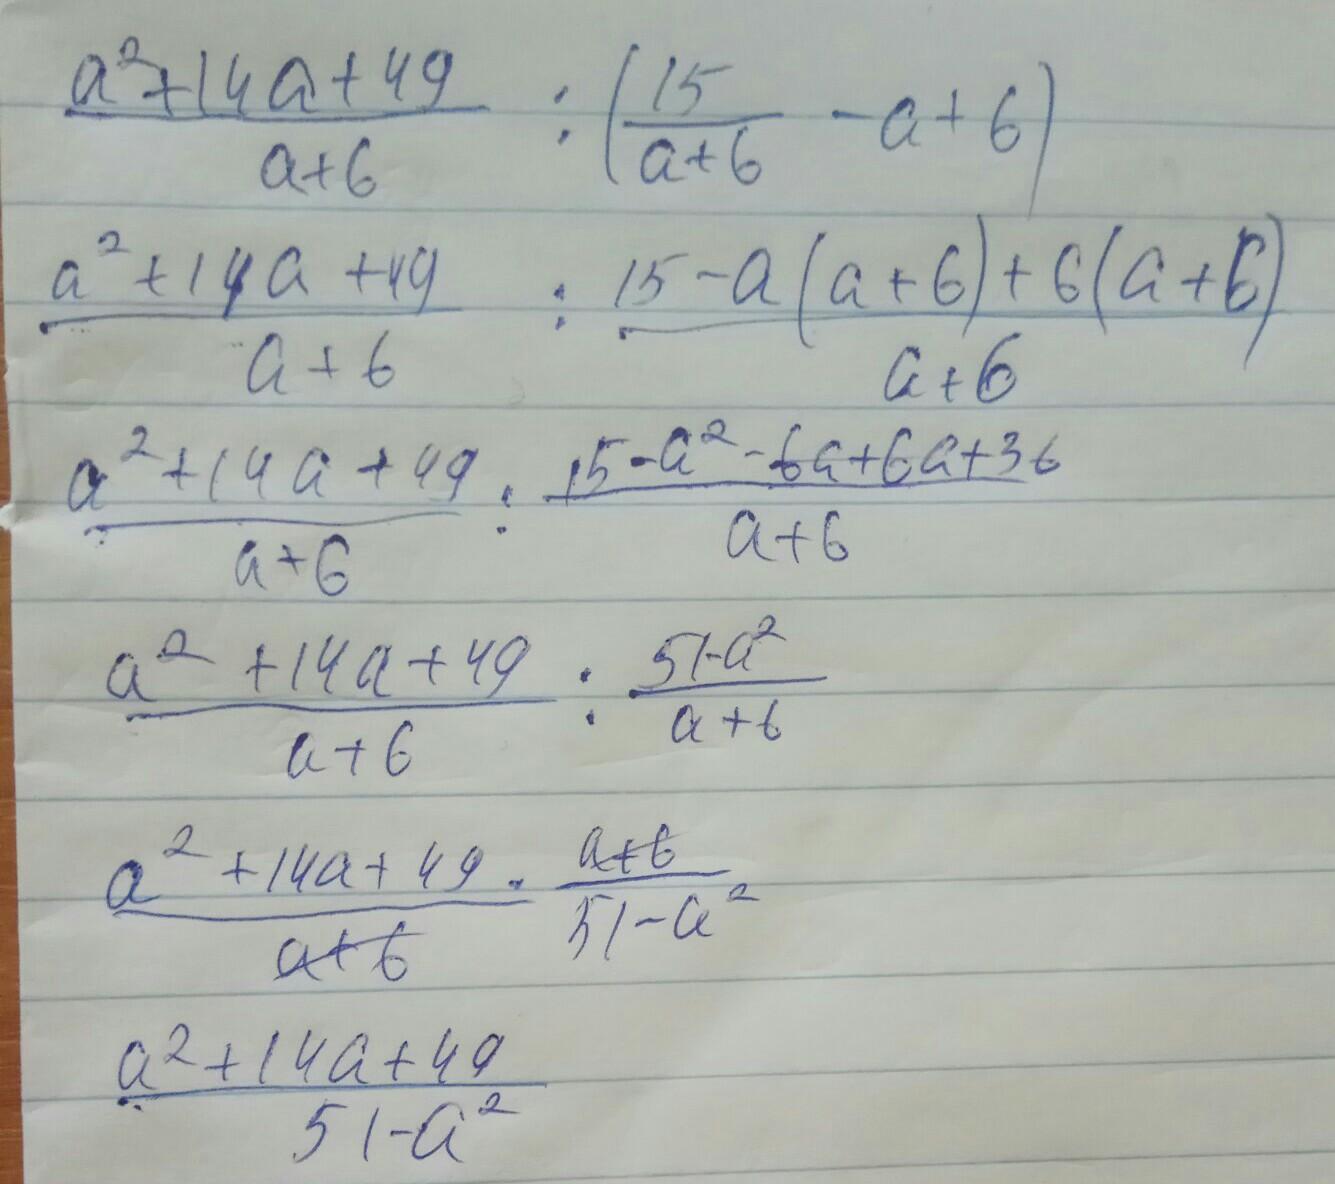 (a²+14a+49)/(a+6) : (15/(a+6) -a+6)
(a²+14a+49)/(a+6) : (15-a(a+6)+6(a+6))/(a+6)
(a²+14a+49)/(a+6) : (15-a²-6a+6a+36)/(a+6)
(a²+14a+49)/(a+6) : (51-a²)/(a+6)
(a²+14a+49)/(a+6) · (a+6)/(51-a²)
(a²+14a+49)/(51-a²)